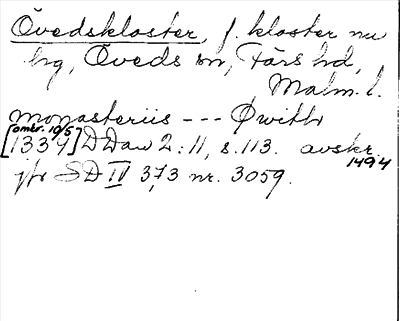 Övedskloster, f. kloster nu
hg, Öveds sn, Färs hd,
Malm. l.
monasteriis --- Øwith
[omkr. 10/5 1334] DDaw 2:11, s. 113. avskr. 1494
jfr SD IV 373 nr. 3059.